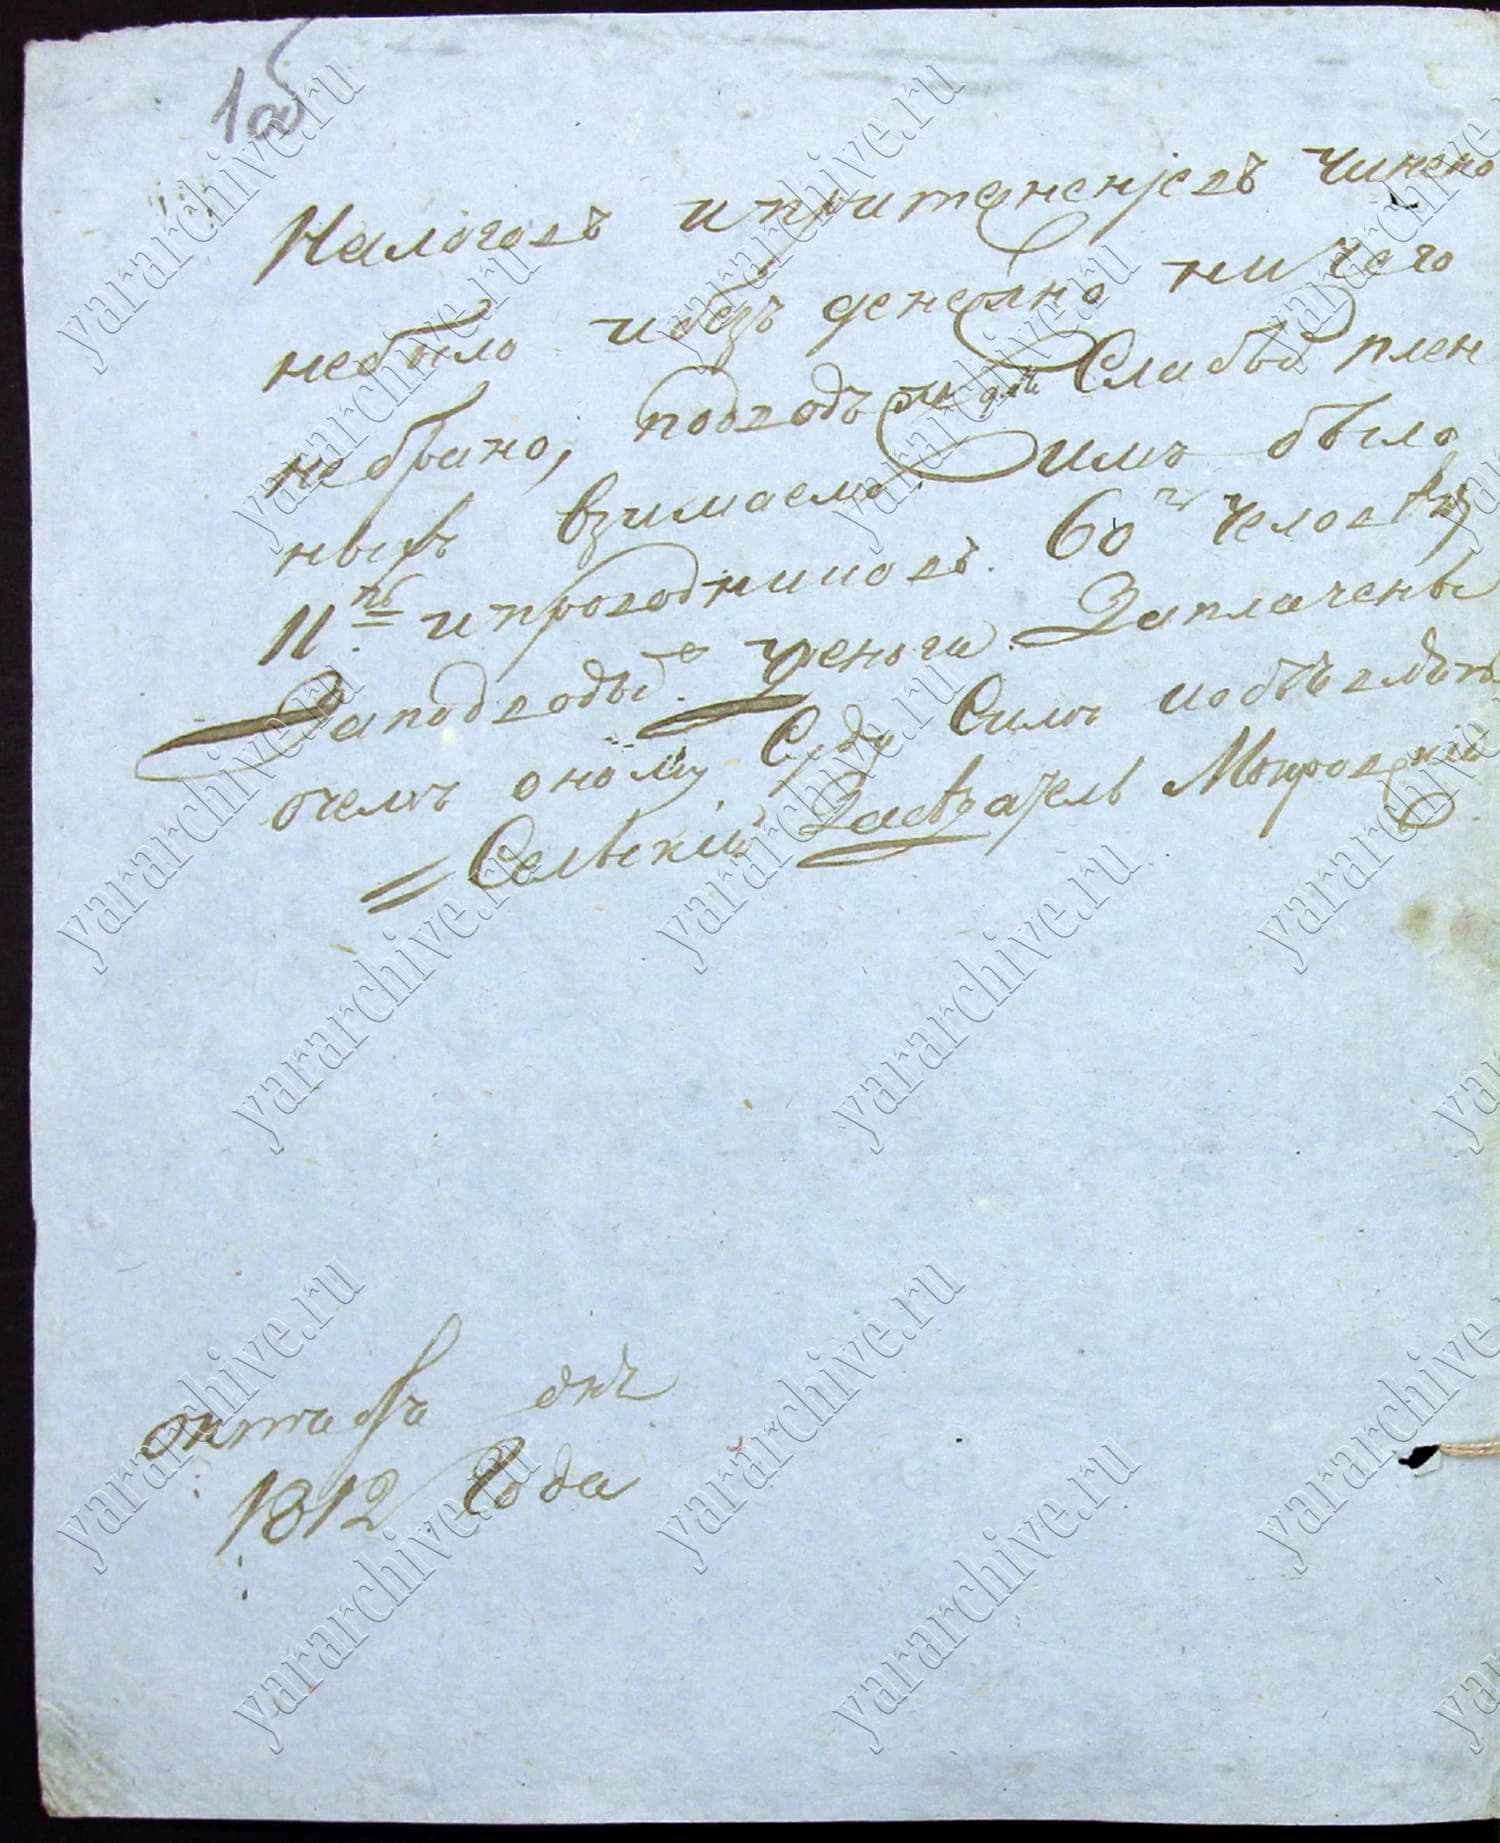 1об
Налоговъ и притененiевъ чинено
небыло ибезъ денежно ничего
небрано, подводъ же для Слабыхъ плен
ныхъ взимаемо имъ было
11ть ипроводниковъ. 60ть человекъ
Заподводы деньги Заплачены
очемъ оному Суду Симъ иобъявляетъ
= Сельскiй Заседатель Мокровскiй
октября дня
1812 Года